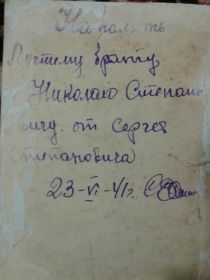 На память
Лучшему брату
Николаю Степано
вичу. от Сергея
Степановича
23-VI-41г.